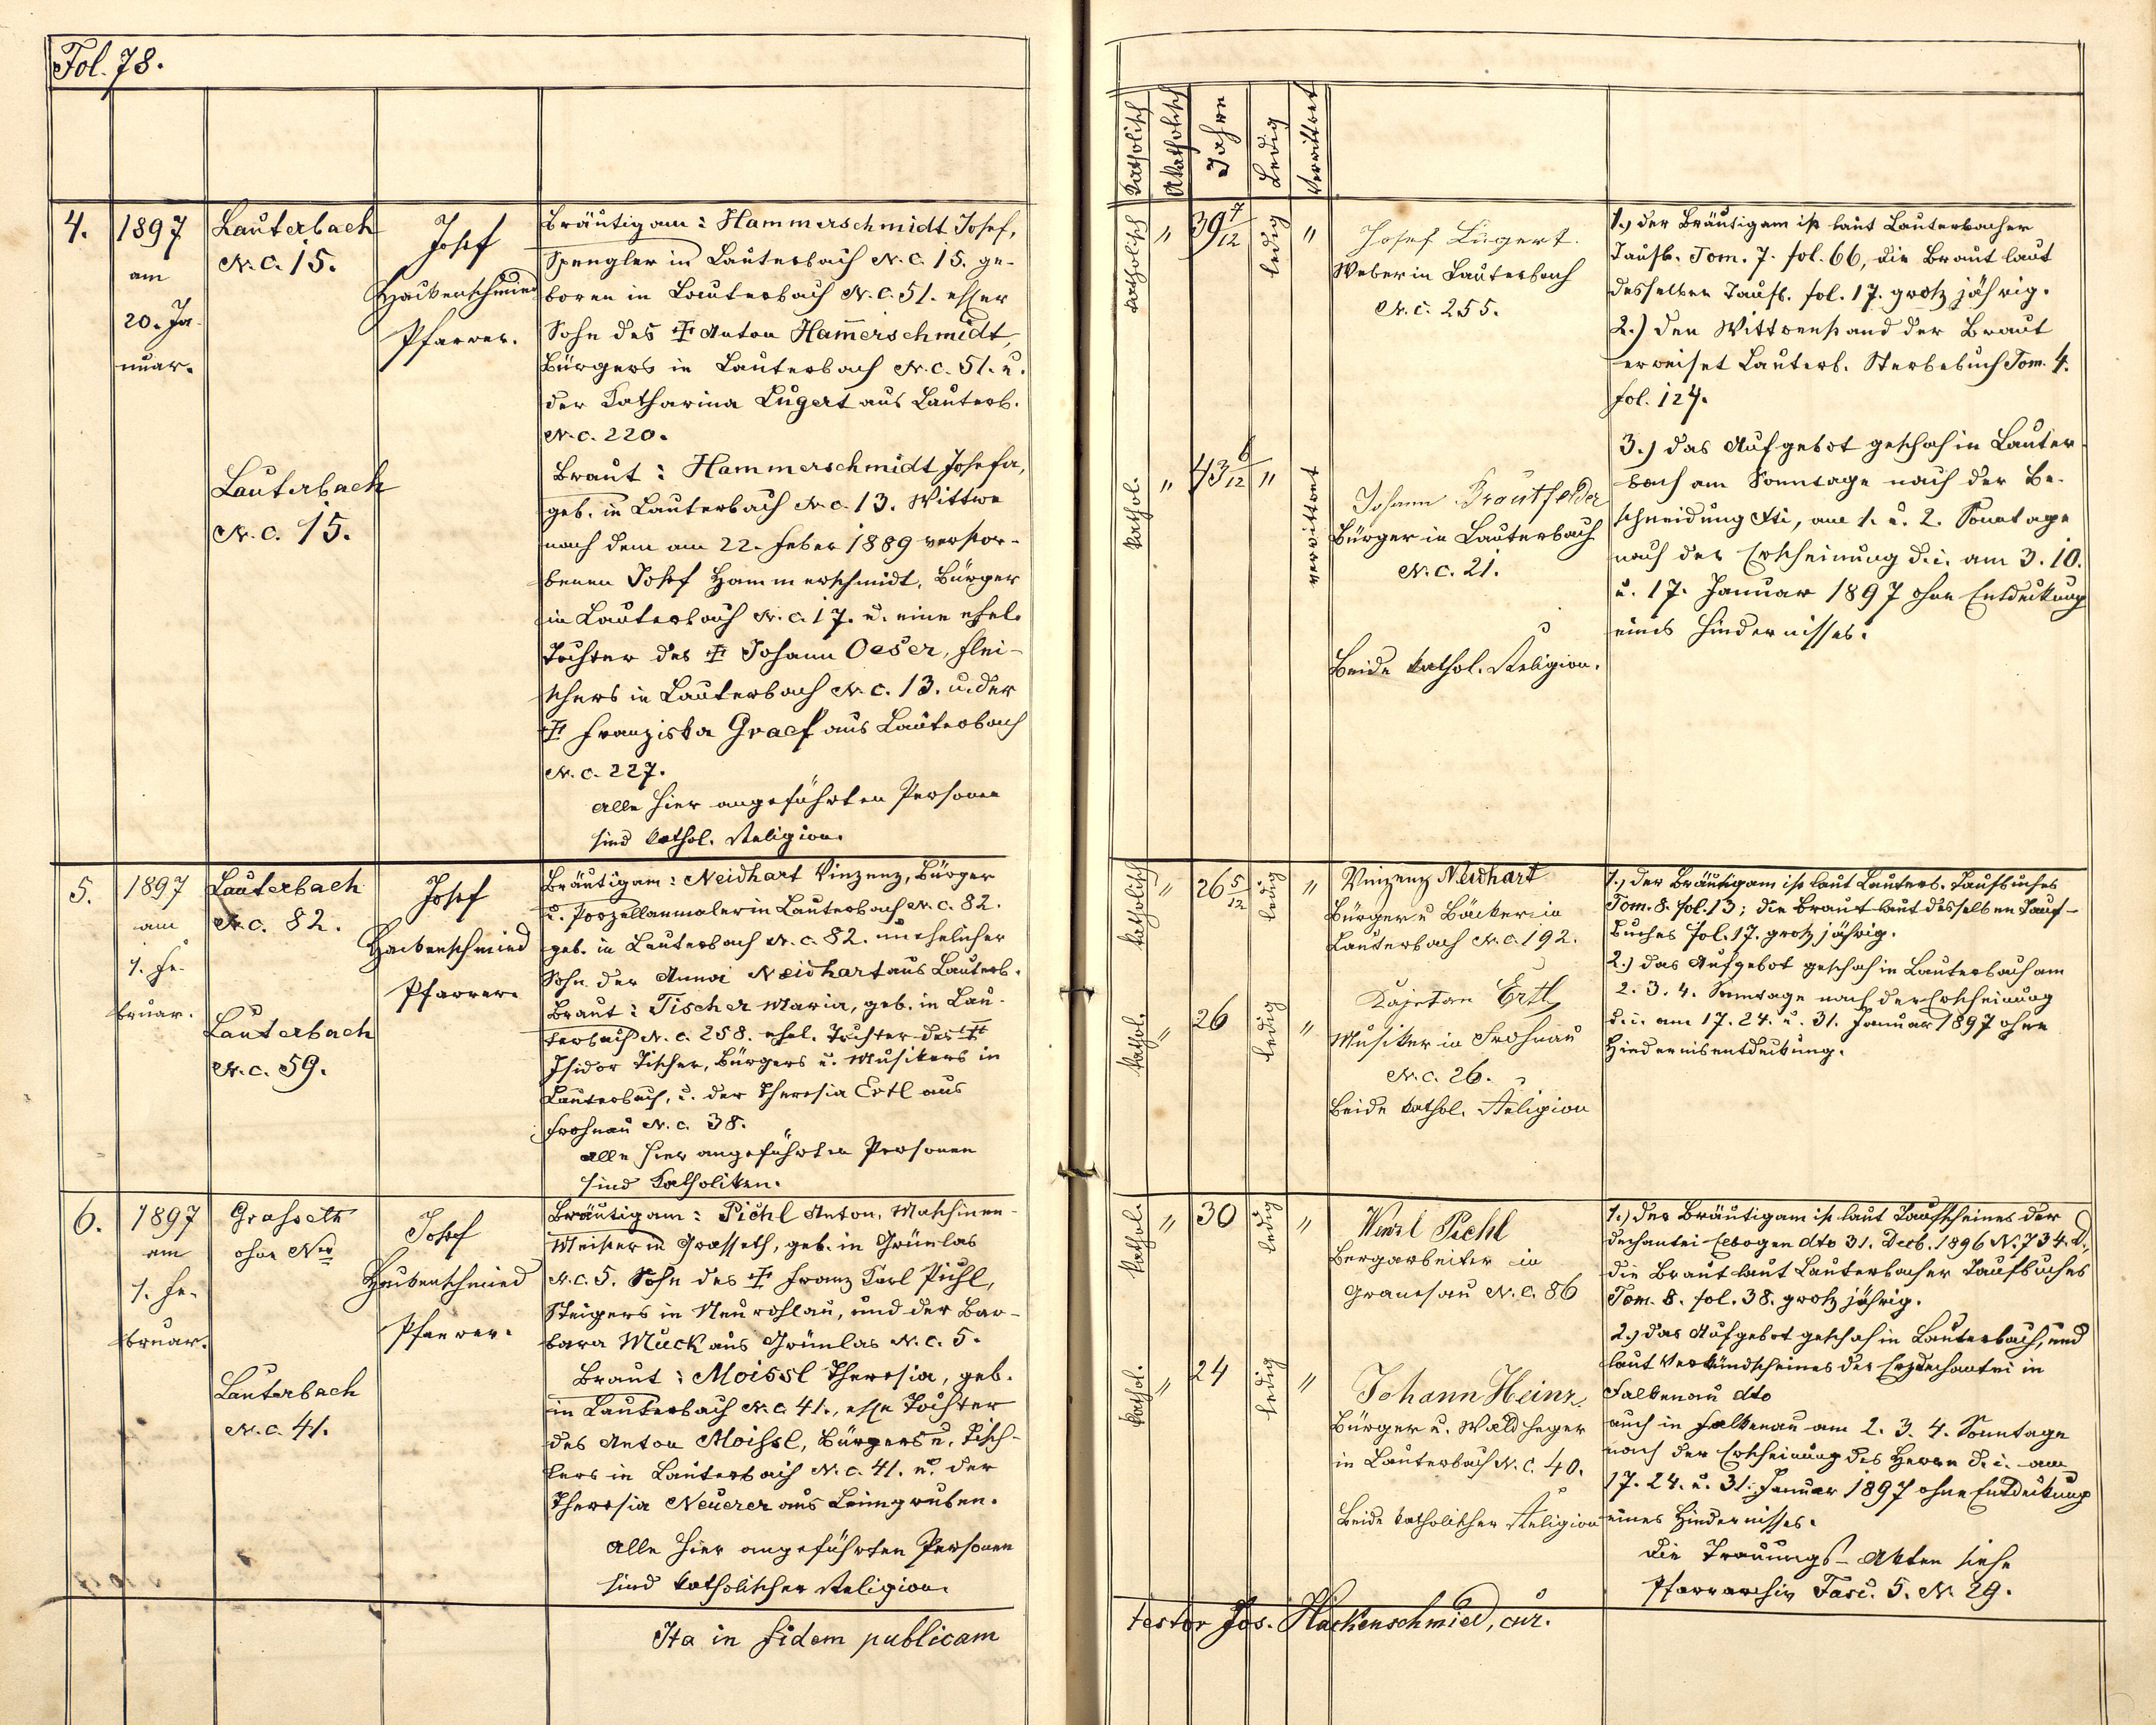 Fol. 78.
4.
1897
am
20. Ja-
nuar.
Lauterbach
N.c. 15.
Lauterbach
N.c. 15.
Josef
Hackenschmied
Pfarrer.
Bräutigam: Hammerschmidt Josef,
Spengler in Lauterbach N.c. 15. ge-
boren in Lauterbach N.c. 51. ehler
Sohn des ♰ Anton Ham̅erschmidt,
Bürgers in Lauterbach N.c. 51. u.
der Katharina Lugert aus Lauterb.
N.c. 220.
Braut: Hammerschmidt Josefa,
geb. in Lauterbach N.c. 13. Wittwe
nach dem am 22. Feber 1889 verstor-
benen Josef Hammerschmidt, Bürger
in Lauterbach N.c. 17. u. eine ehel.
Tochter des ♰ Johann Oeser, Flei-
schers in Lauterbach N.c. 13. u. der
♰ Franziska Graef aus Lauterbach
N.c. 227.
Alle hier angeführten Personen
sind kathol. Religion.
5.
1897
am
1. Fe-
bruar.
Lauterbach
N.c. 82.
Lauterbach
N.c. 59.
Josef
Hackenschmied
Pfarrer.
Bräutigam: Neidhart Vinzenz, Bürger
u. Porzellanmaler in Lauterbach N.c. 82.
geb. in Lauterbach N.c. 82. unehelicher
Sohn der Anna Neidhart aus Lauterb.
Braut: Tischer Maria, geb. in Lau-
terbach N.c. 258. ehel. Tochter des ♰
Isidor Tischer, Bürgers u. Musikers in
Lauterbach, u. der Theresia Ertl aus
Frohnau N.c. 38.
Alle hier angeführten Personen
sind Katholiken.
6.
1897
am
1. Fe-
bruar.
Grasseth
ohne Nro
Lauterbach
N.c. 41.
Josef
Hackenschmied
Pfarrer.
Bräutigam: Pichl Anton, Maschinen-
Meister in Grasseth, geb. in Grünlas
N.c. 5. Sohn des ♰ Franz Karl Pichl,
Steigers in Neurohlau, und der Bar-
bara Muck aus Grünlas N.c. 5.
Braut: Moissl Theresia, geb.
in Lauterbach N.c. 41., ehle Tochter
des Anton Moissl, Bürgers u. Tisch-
lers in Lauterbach N.c. 41. u. der
Theresia Neuerer aus Leimgruben.
Alle hier angeführten Personen
sind katholischer Religion.
Ita in fidem publicam
Katholisch
Akatholisch
Jahre
Ledig
Verwittwet
katholisch " 39 7/12 ledig "
kathol. " 43 6/12 " verwittwet
Josef Lugert.
Weber in Lauterbach
N.c. 255.
Johann Brautfelder
Bürger in Lauterbach
N.c. 21.
Beide kathol. Religion.
1.) Der Bräutigam ist laut Lauterbacher
Taufb. Tom. 7. fol. 66, die Braut laut
desselben Taufb. fol. 17. großjährig.
2.) Den Wittwenstand der Braut
erweiset Lauterb. Sterbebuch Tom. 4.
fol. 124.
3.) Das Aufgebot geschah in Lauter-
bach am Sonntage nach der Be-
schneidung Xti, am 1. u. 2. Sonntage
nach der Erscheinung d.i. am 3. 10.
u. 17. Januar 1897 ohne Entdeckung
eines Hindernisses.
katholisch " 26 5/12 ledig "
kathol. " 26 ledig "
Vinzenz Neidhart
Bürger u Bäcker in
Lauterbach N.c. 192.
Kajetan Ertl
Musiker in Frohnau
N.c. 26.
Beide kathol. Religion
1.) Der Bräutigam ist laut Lauterb. Taufbuches
Tom. 8. fol. 13; die Braut laut desselben Tauf-
buches fol. 17. großjährig.
2.) Das Aufgebot geschah in Lauterbach am
2. 3. 4. Sonntage nach der Erscheinung
d.i. am 17. 24. u. 31. Januar 1897 ohne
Hindernisentdeckung.
kathol. " 30 ledig "
kathol. " 24 ledig "
Wenzl Pichl
Bergarbeiter in
Granesau N.c. 86
Johann Heinz
Bürger u. Waldheger
in Lauterbach N.c. 40.
Beide katholischer Religion
1.) Der Bräutigam ist laut Taufscheines der
Dechantei Elbogen dto 31. Decb. 1896 N. 734. D.,
die Braut laut Lauterbacher Taufbuches
Tom. 8. fol. 38. großjährig.
2.) Das Aufgebot geschah in Lauterbach, und
laut Verkündscheines der Erzdechantei in
Falkenau dto
auch in Falkenau am 2. 3. 4. Sonntage
nach der Erscheinung des Herrn d.i. am
17. 24. u. 31. Januar 1897 ohne Entdeckung
eines Hindernisses.
Die Trauungs-Akten siehe
Pfarrarchiv Fasc. 5. N. 29.
testor Jos. Hackenschmied, cur.